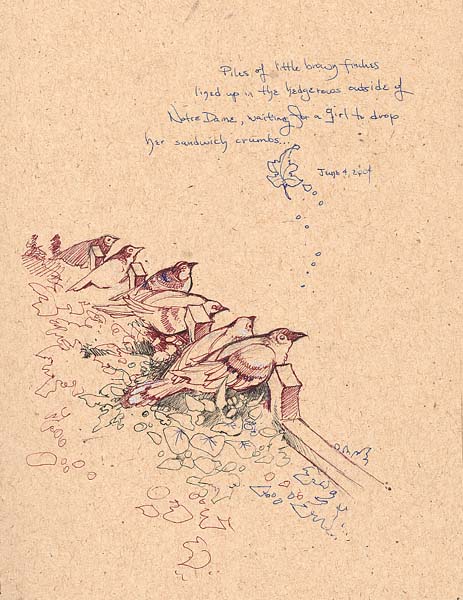 Piles of little brown finches
lined up in the hedgerows outside of
Notre Dame, waiting for a girl to drop
her sandwich crumbs...
June 4, 2004